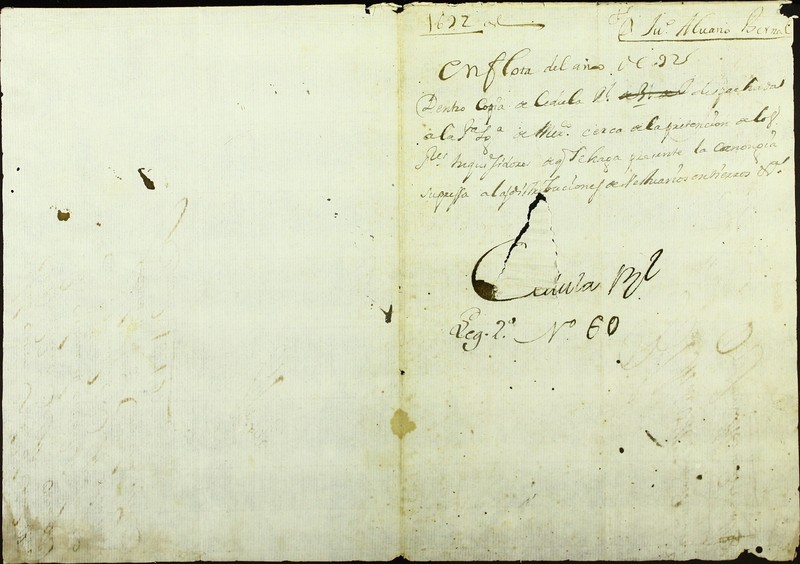 1692
Ju.º Aluaro Bernal
en flota del año de 92
Dentro Copia de Cedula Rl. despachada
a la Sta Yga de Mex.co cerca de la pretencion de los
Sres Inquisidores de q Tehaga presente la canongia
supressa a las distribuciones de Aniuersarios entierros &a.
Cedula Rl
Leg. 2º Nº 60